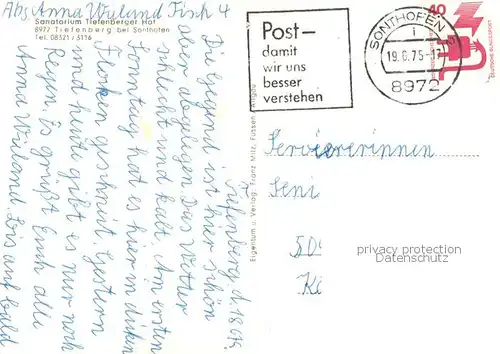 Abs. Anna Wieland Fisch 4
Sanatorium Tiefenberger Hof
8972 Tiefenberg bei Sonthofen
Tel. 08321 / 3116
Tiefenberg, d. 18.6.75
Die Gegend ist hier schön
aber abgelegen. Das Wetter
schlecht und kalt. Am ersten
Sonntag hat es hier in dicken
Flocken geschneit. Gestern
und heute gibt es nur noch
Regen. Es grüßt Euch alle
Anna Wieland. Bis auf bald
Eigentum u. Verlag: Franz Milz, Füssen Allgäu
Post–
damit
wir uns
besser
verstehen
SONTHOFEN
19.6.75-17
8972
40
DEUTSCHE BUNDESPOST
Serviererinnen
Seni
50
privacy protection
Datenschutz